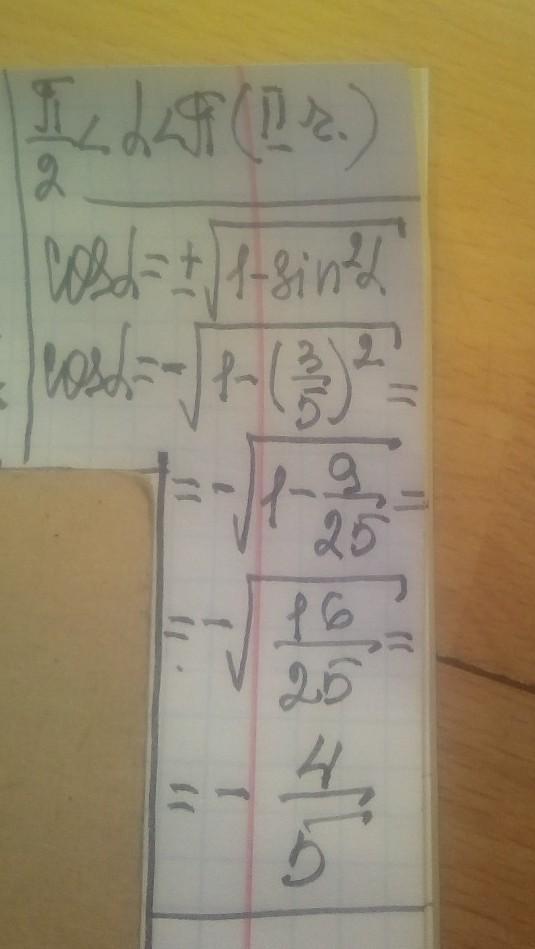 π/2 < α < π (II ч.)
cosα = ±√(1 - sin²α)
cosα = -√(1 - (3/5)²) =
= -√(1 - 9/25) =
= -√(16/25) =
= - 4/5